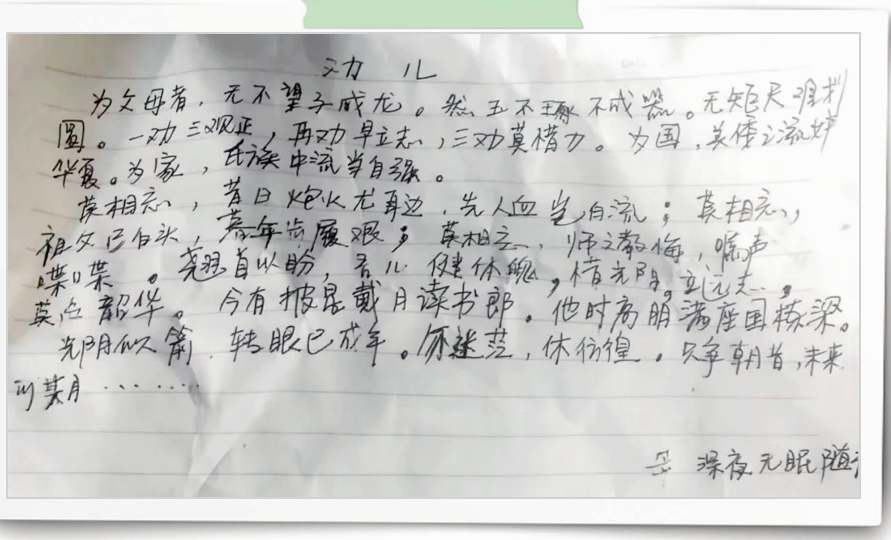 劝 儿
为父母者，无不望子成龙。然玉不琢不成器。无矩尺难
圆。一劝三观正，再劝早立志，三劝莫惜力。为国，英
华夏。为家，氏族中流当自强。
莫相忘，昔日炮火尤耳边，先人血岂白流；莫相忘，
祖父已白头，暮年步履艰；莫相忘，师之教悔，嘱声
喋喋。翘首以盼，吾儿健体魄，惜光阴，立远志，
莫负韶华。今有披星戴月读书郎。他时高朋满座国栋梁。
光阴似箭，转眼已成年。勿迷茫，休彷徨。只争朝昔，未来
可期 ........
深夜无眠随